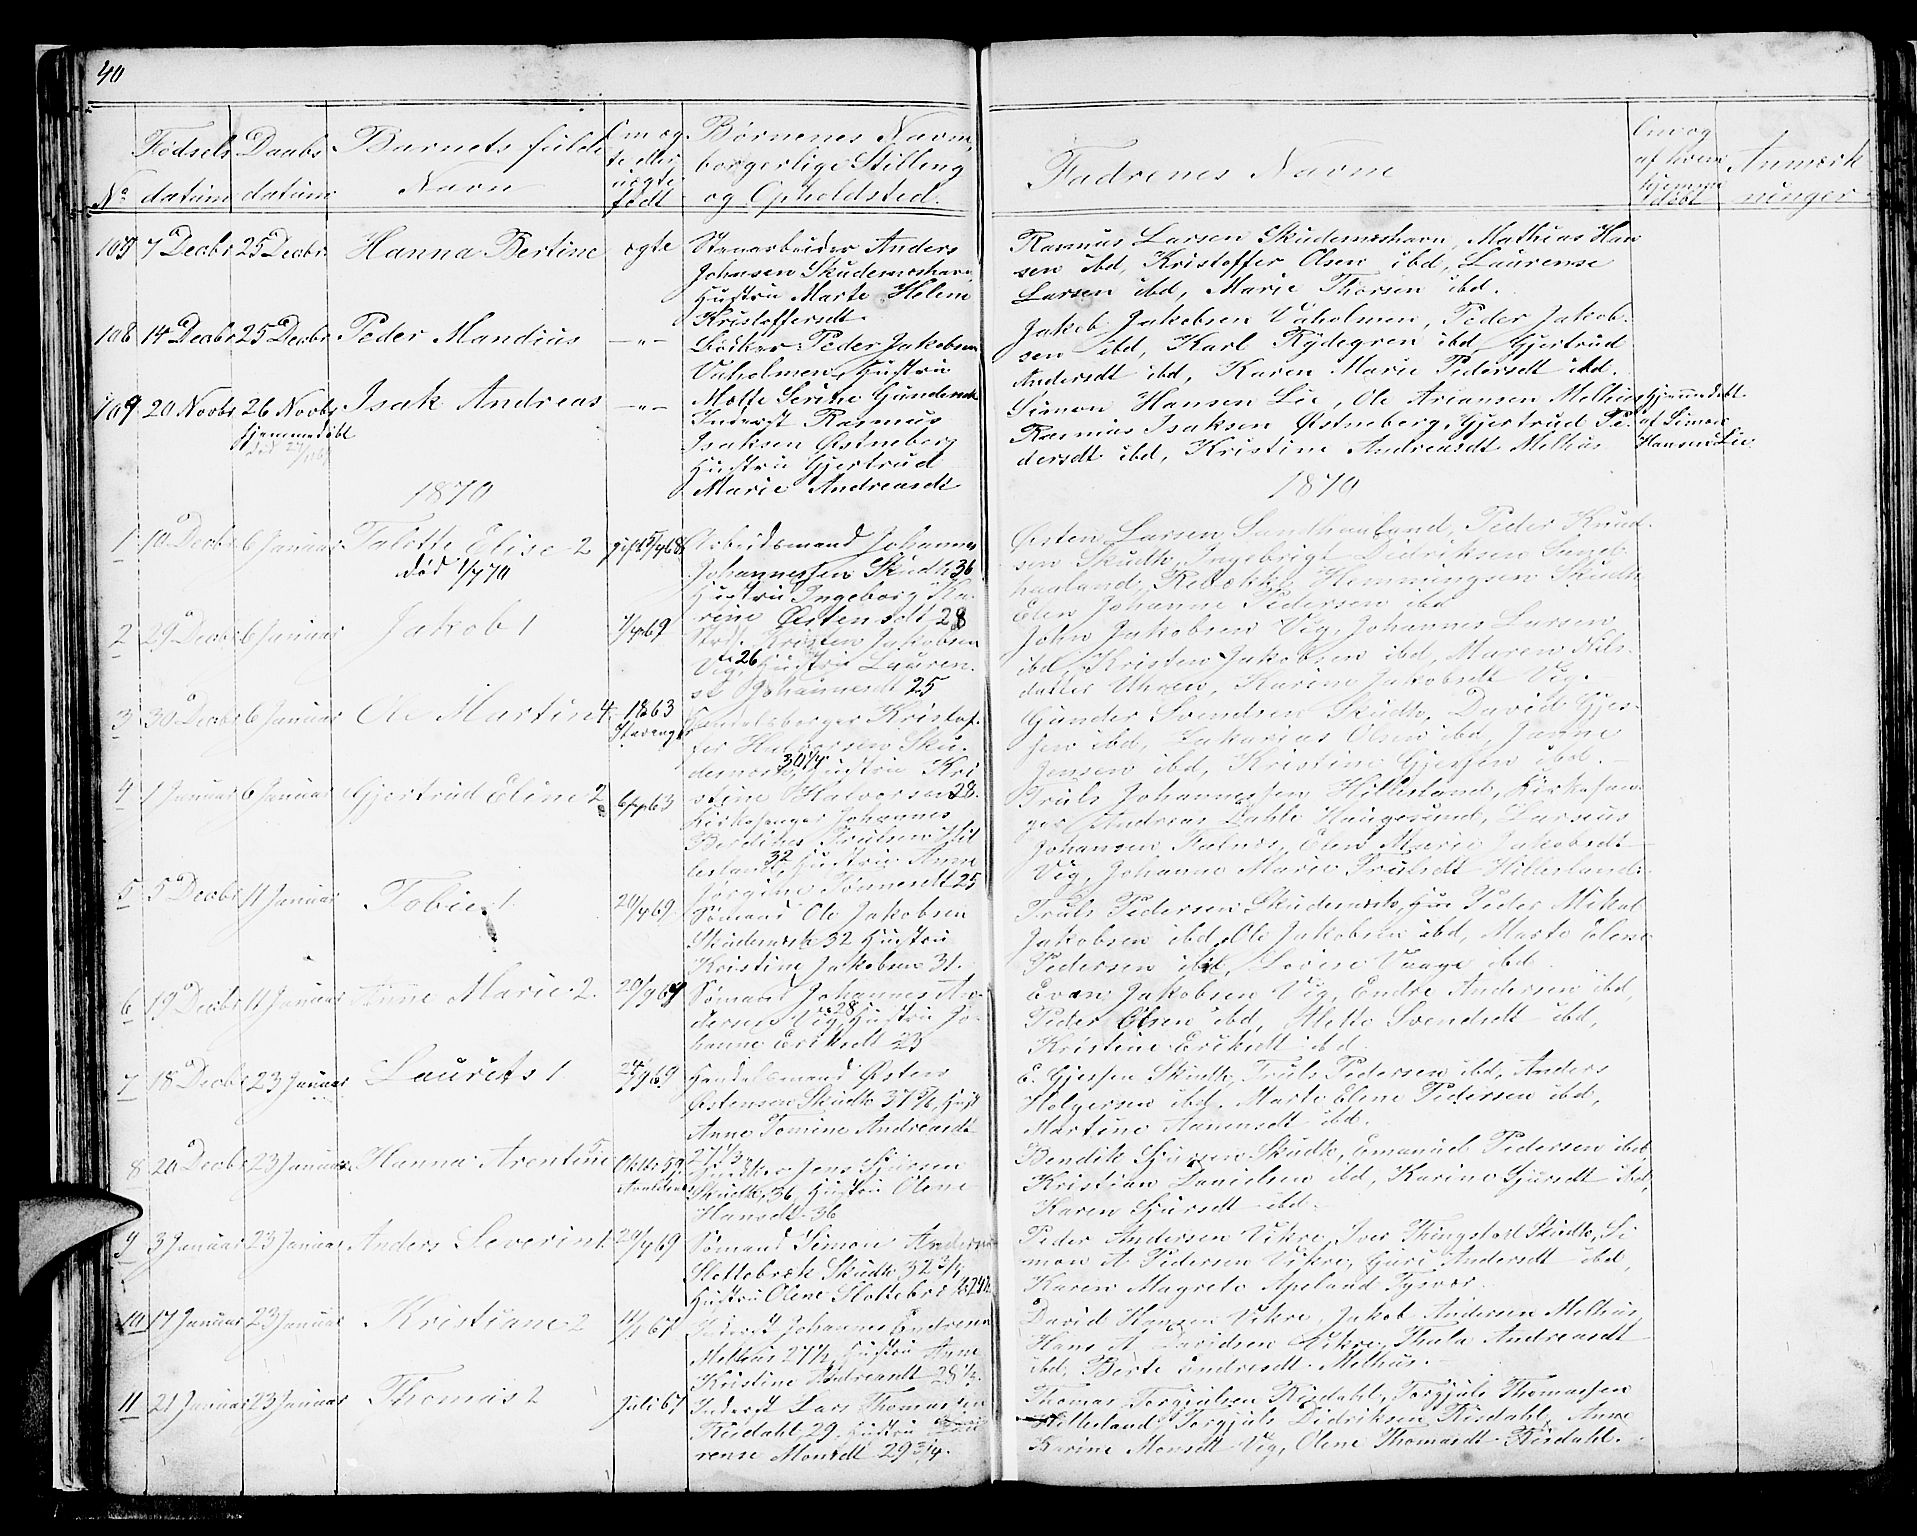 40
No
Fødsels
datum
Daabs
datum
Barnets fulde
Navn
Om æg
te eller
uægte
født
Børnenes Navn,
borgerlige Stilling
og Opholdsted.
Fadrenes Navne
Om og
af hvem
hjemme
døbt
Anmærk
ninger
107 7 Decbr 25 Decbr. Hanna Bertine ægte
Anders
Johnsen Skudeneshavn
Hustru Marte Helene
Kristoffersdt.
Rasmus Larsen Skudeneshavn, Mathias Han
sen ibd, Kristoffer Olsen ibd, Laurense
Larsen ibd, Marie Thorsen ibd.
108 14 Decbr 25 Decbr Peder Mandius —"—
Peder Jakobsen
Vaholmen, Hustru
Mette Serine Gundersdt
Jakob Jakobsen Vaholmen, Peder Jakob-
sen ibd, Karl Rydegren ibd, Gjertrud
Andersdt ibd, Karen Marie Pedersdt ibd.
109 20 Novbr 26 Novbr Isak Andreas —"—
Hjemmedøbt
Inderst Rasmus
Isaksen Østneberg
Hustru Gjertrud
Marie Andreasdt
Simon Hansen Lie, Ole Ariansen Melhus
Rasmus Isaksen Østneberg, Gjertrud Pe-
dersdt ibd, Kristine Andreasdt Melhus
Hjemmedøbt
af Simon
Hansen Lie
1870
1870
1 10 Decbr 6 Januar Talette Elise 2
død 1/7 70
Arbeidsmand Johannes
Johannessen Skudh 36
Hustru Ingeborg Ka-
rine Østensdt 28
Østen Larsen Sandhaaland, Peder Knud-
sen Skudh, Ingebrigt Didriksen Sand-
haaland, Rebekka Hemmingsen Skudh
Elen Johanne Pedersen ibd
2 29 Decbr 6 Januar Jakob 1
Kristen Jakobsen
Vig 26 Hustru Lauren-
se Johannesdt 25
John Jakobsen Vig Johannes Larsen
ibd, Kristen Jakobsen ibd, Maren Nils-
datter Uhren, Karine Jakobsdt Vig.
3 30 Decbr 6 Januar Ole Martin 4 1863
Stavanger
Handelsborger Kristof-
fer Halvorsen Sku-
30 1/4
Hustru Kri
stine Halvorsen 28.
Gunder Svendsen Skudh, David Gjes-
sen ibd, Zakarias Olsen ibd, Janne
Jensen ibd, Kristine Gjessen ibd.
4 1 Januar 6 Januar Gjertrud Eline 2
Kirkesanger Johannes
Berdines Trulsen Hil
lesland 32, Hustru Anne
Jørgine Tønnesdt 25
Truls Johannessen Hillesland, Kirkesan-
ger Andreas Dahle Haugesund, Larsius
Johansen Falnes, Elen Marie Jakobsdt
Vig, Johanne Marie Trulsdt Hillesland.
5 5 Decbr 11 Januar Tobie 1
20/4 69
Sømand Ole Jakobsen
32 Hustru
Kristine Jakobsen 31.
Truls Pedersen Peder Mikal
Jakobsen ibd, Ole Jakobsen ibd, Marte Elene
Pedersen ibd, Lovise Vaage ibd
6 19 Decbr 11 Januar Anne Marie 2.
Sømand Johannes An-
dersen Vig 28 Hustru Jo-
hanne Eriksdt 23
Evan Jakobsen Vig, Endre Andersen ibd,
Peder Olsen ibd, Mette Svendsdt ibd,
Kristine Eriksdt ibd.
7 18 Decbr 23 Januar Laurits 1
Handelsmand Østen
Østensen Skudh 37 Hust
Anne Tomine Andreasdt
27 1/3
E. Gjessen Skudh, Truls Pedersen ibd, Anders
Holgersen ibd, Marte Elene Pedersen ibd,
Martine Aanensdt ibd.
8 20 Decbr 23 Januar Hanna Arentine 5
Oktbr 59
Jens Sjursen
Skudh, 36, Hustru Olene
Hansdt 36
Bendik Sjursen Skudh, Emanuel Pedersen ibd
Kristian Danielsen ibd, Karine Sjursdt ibd,
Karen Sjursdt ibd.
9 3 Januar 23 Januar Anders Severin 1.
29/4 69
Sømand Simon Anders
Slottebræk Skudh 32 3/4
Hustru Olene
Peder Andersen Vikre, Iver Thingstad Skudh, Si
mon A Pedersen Vikre, Guri Andersdt ibd,
Karen Magrete Apeland Tysvær
10 17 Januar 23 Januar Kristiane 2
Inderst Johannes Endresen
Melhus 27 1/2, Hustru Anne
Kristine Andreasdt 28 1/2.
David Hansen Vikre, Jakob Andersen Melhus
Hans A Davidsen Vikre, Thala Andreasdt
ibd, Berte Endresdt Melhus.
11 21 Januar 23 Januar Thomas 2
Juli 67
Inderst Lars Thomassen
Risdahl, 29, Hustru Lau
rense Monsdt 29 3/4.
Thomas Torgjulsen Risdahl, Torgjuls Thomassen
Hillesland, Torgjuls Didriksen Risdahl, Anne
Karine Monsdt Vig, Olene Thomasdt Risdahl.